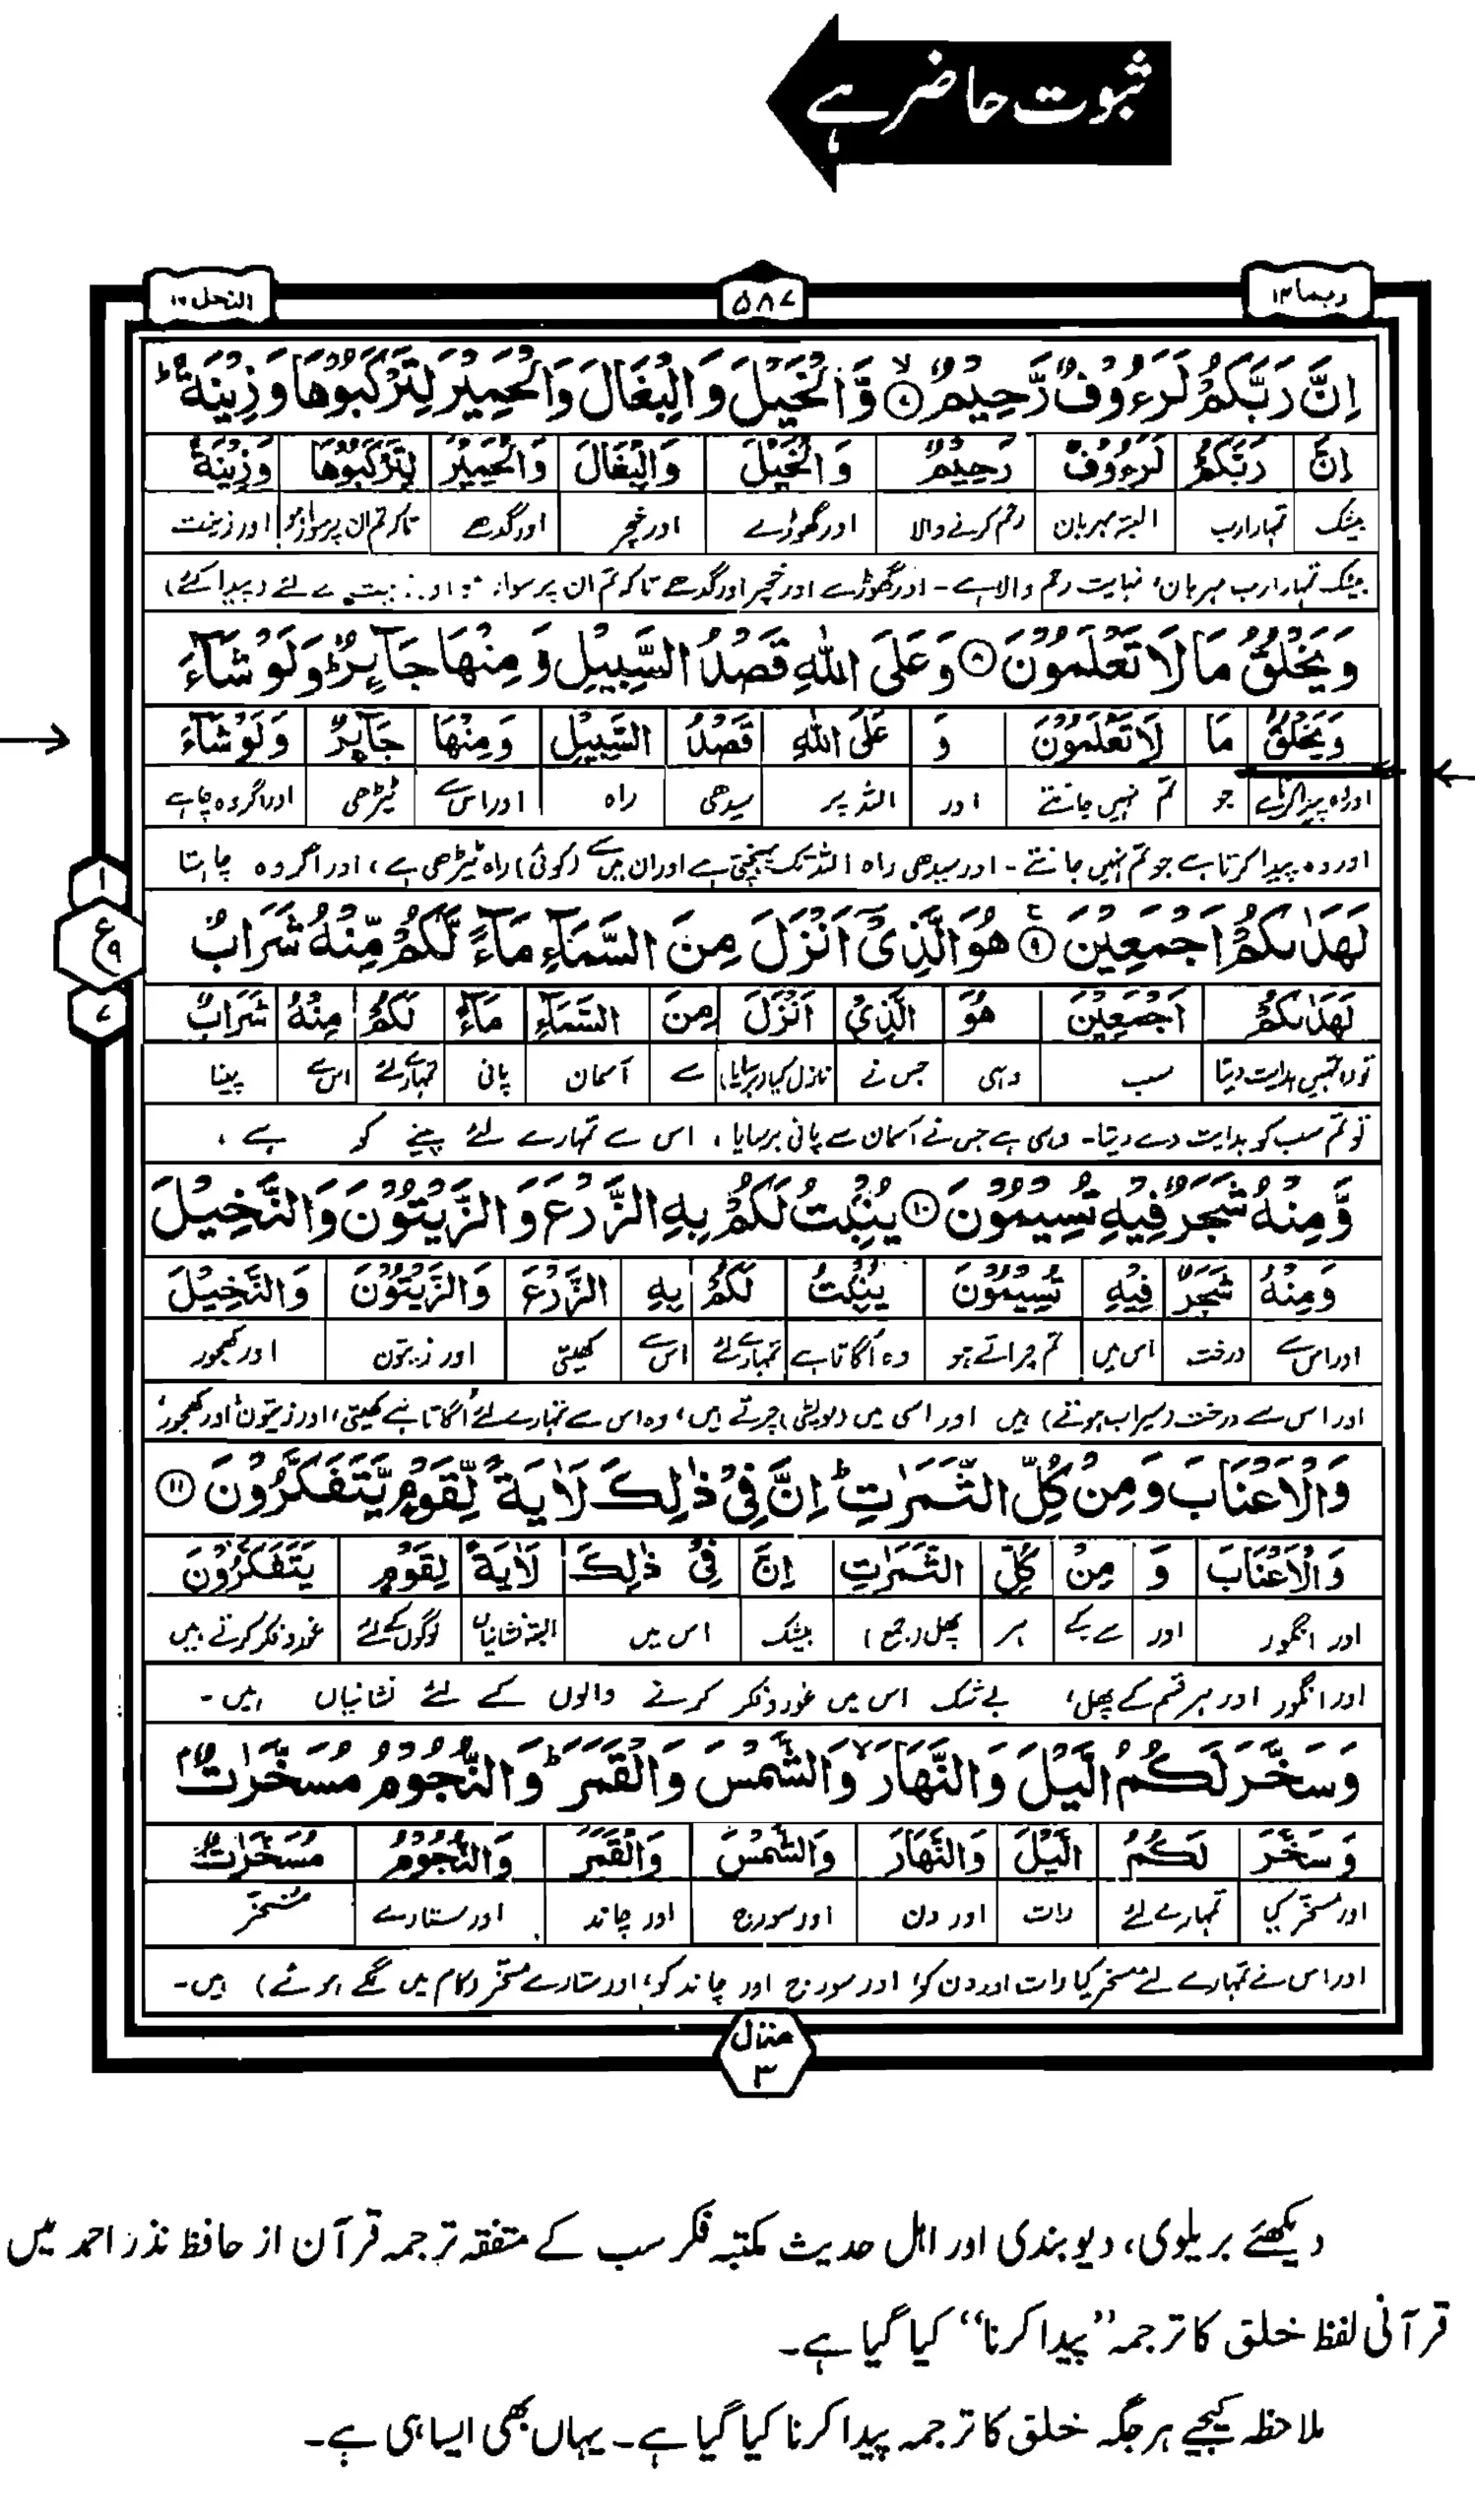 ثبوت حاضر ہے
ربما ۱۴
۵۸۷
النحل ۱۶
اِنَّ رَبَّكُمْ لَرَءُوْفٌ رَّحِيْمٌ ۙ وَّالْخَيْلَ وَالْبِغَالَ وَالْحَمِيْرَ لِتَرْكَبُوْهَا وَزِيْنَةً ؕ
اِنَّ رَبَّكُمْ لَرَءُوْفٌ رَحِيْمٌ وَالْخَيْلَ وَالْبِغَالَ وَالْحَمِيْرَ لِتَرْكَبُوْهَا وَزِيْنَةً
بیشک تمہارا رب البتہ مہربان رحم کرنے والا اور گھوڑے اور خچر اور گدھے تاکہ تم ان پر سوار ہو اور زینت
بیشک تمہارا رب مہربان، نہایت رحم والا ہے۔ اور گھوڑے اور خچر اور گدھے تاکہ تم ان پر سوار ہو اور زینت کے لئے (پیدا کئے)
وَيَخْلُقُ مَا لَا تَعْلَمُوْنَ ۸ وَعَلَى اللّٰهِ قَصْدُ السَّبِيْلِ وَمِنْهَا جَآئِرٌ ؕ وَلَوْ شَآءَ
وَيَخْلُقُ مَا لَا تَعْلَمُوْنَ وَ عَلَى اللّٰهِ قَصْدُ السَّبِيْلِ وَمِنْهَا جَآئِرٌ وَلَوْ شَآءَ
اور وہ پیدا کرتا ہے جو تم نہیں جانتے اور اللہ پر سیدھی راہ اور اس سے ٹیڑھی اور اگر وہ چاہے
اور وہ پیدا کرتا ہے جو تم نہیں جانتے۔ اور سیدھی راہ اللہ تک پہنچتی ہے اور ان میں سے (کوئی) راہ ٹیڑھی ہے، اور اگر وہ چاہتا
لَهَدٰىكُمْ اَجْمَعِيْنَ ۹ هُوَ الَّذِيْۤ اَنْزَلَ مِنَ السَّمَآءِ مَآءً لَّكُمْ مِّنْهُ شَرَابٌ
۱
ع
۹
۷
لَهَدٰىكُمْ اَجْمَعِيْنَ هُوَ الَّذِيْ اَنْزَلَ مِنَ السَّمَآءِ مَآءً لَكُمْ مِنْهُ شَرَابٌ
تو وہ تمہیں ہدایت دیتا سب وہی جس نے نازل کیا (برسایا) سے آسمان پانی تمہارے لئے اس سے پینا
تو تم سب کو ہدایت دے دیتا۔ وہی ہے جس نے آسمان سے پانی برسایا، اس سے تمہارے لئے پینے کو ہے،
وَّمِنْهُ شَجَرٌ فِيْهِ تُسِيْمُوْنَ ۱۰ يُنْۢبِتُ لَكُمْ بِهِ الزَّرْعَ وَالزَّيْتُوْنَ وَالنَّخِيْلَ
وَمِنْهُ شَجَرٌ فِيْهِ تُسِيْمُوْنَ يُنْۢبِتُ لَكُمْ بِهِ الزَّرْعَ وَالزَّيْتُوْنَ وَالنَّخِيْلَ
اور اس سے درخت اس میں تم چراتے ہو وہ اگاتا ہے تمہارے لئے اس سے کھیتی اور زیتون اور کھجور
اور اس سے درخت (سیراب ہوتے) ہیں اور اسی میں (مویشی) چرتے ہیں، وہ اس سے تمہارے لئے اُگاتا ہے کھیتی، اور زیتون، اور کھجور،
وَالْاَعْنَابَ وَمِنْ كُلِّ الثَّمَرٰتِ ؕ اِنَّ فِيْ ذٰلِكَ لَاٰيَةً لِّقَوْمٍ يَّتَفَكَّرُوْنَ ۱۱
وَالْاَعْنَابَ وَ مِنْ كُلِّ الثَّمَرٰتِ اِنَّ فِيْ ذٰلِكَ لَاٰيَةً لِقَوْمٍ يَتَفَكَّرُوْنَ
اور انگور اور سے کے ہر پھل (جمع) بیشک اس میں البتہ نشانیاں لوگوں کے لئے غور و فکر کرتے ہیں
اور انگور اور ہر قسم کے پھل، بے شک اس میں غور و فکر کرنے والوں کے لئے نشانیاں ہیں۔
وَسَخَّرَ لَكُمُ الَّيْلَ وَالنَّهَارَ ۙ وَالشَّمْسَ وَالْقَمَرَ ؕ وَالنُّجُوْمُ مُسَخَّرٰتٌۢ
وَسَخَّرَ لَكُمُ الَّيْلَ وَالنَّهَارَ وَالشَّمْسَ وَالْقَمَرَ وَالنُّجُوْمُ مُسَخَّرٰتٌ
اور مسخر کیا تمہارے لئے رات اور دن اور سورج اور چاند اور ستارے مسخر
اور اس نے تمہارے لئے مسخر کیا رات اور دن کو، اور سورج اور چاند کو، اور ستارے مسخر (کام میں لگے ہوئے) ہیں۔
منزل
۳
دیکھئے بریلوی، دیوبندی اور اہل حدیث مکتبہ فکر سب کے متفقہ ترجمہ قرآن از حافظ نذر احمد میں
قرآنی لفظ خلق کا ترجمہ ”پیدا کرنا“ کیا گیا ہے۔
ملاحظہ کیجیے ہر جگہ خلق کا ترجمہ پیدا کرنا کیا گیا ہے۔ یہاں بھی ایسا ہی ہے۔